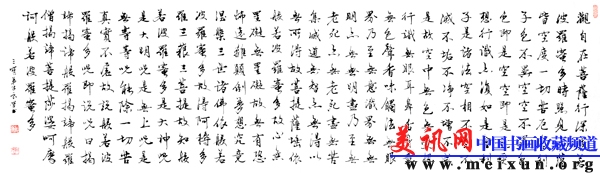 觀自在菩薩行深般若
波羅蜜多時照見五蘊
皆空度一切苦厄舍利
子色不異空空不異色
色即是空空即是色受
想行識亦復如是舍利
子是諸法空相不生不
滅不垢不淨不增不減
是故空中無色無受想
行識無眼耳鼻舌身意
無色聲香味觸法無眼
界乃至無意識界無無
明亦無無明盡乃至無
老死亦無老死盡無苦
集滅道無智亦無得以
無所得故菩提薩埵依
般若波羅蜜多故心無
罣礙無罣礙故無有恐
怖遠離顛倒夢想究竟
涅槃三世諸佛依般若
波羅蜜多故得阿耨多
羅三藐三菩提故知般
若波羅蜜多是大神咒
是大明咒是無上咒是
無等等咒能除一切苦
真實不虛故說般若波
羅蜜多咒即說咒曰揭
諦揭諦波羅揭諦波羅
僧揭諦菩提薩婆訶摩
訶般若波羅蜜多
美讯网
中国书画收藏频道
www.meixun.org